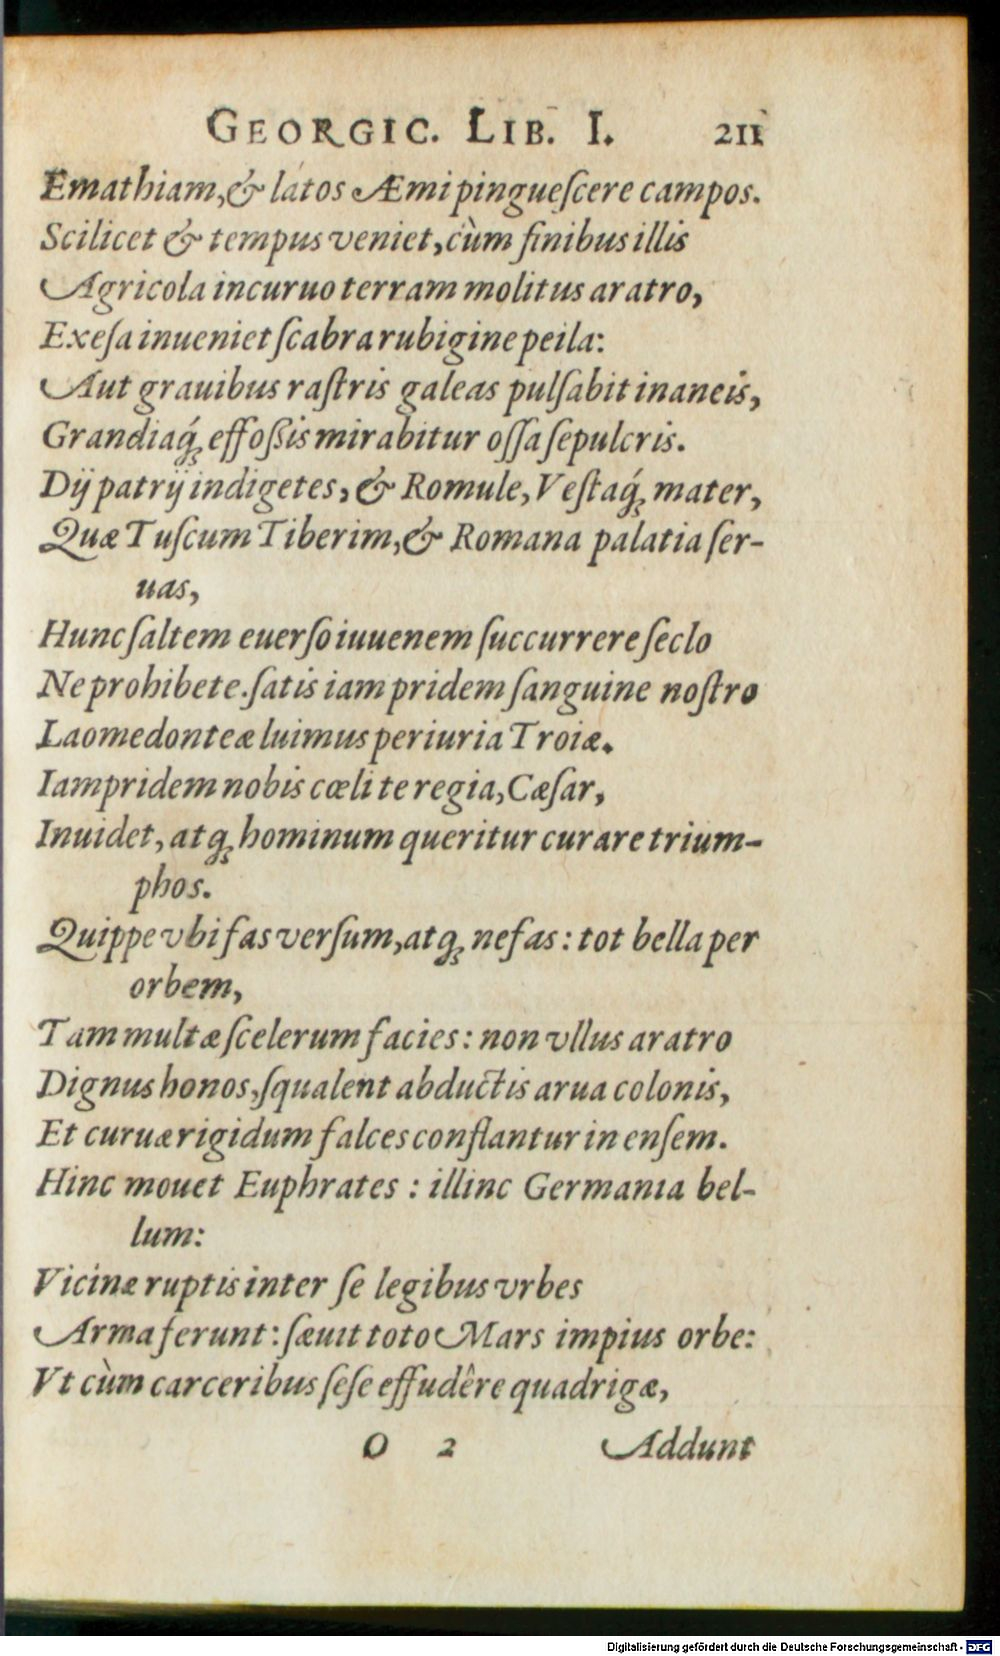 GEORGIC. LIB. I. 211
Emathiam, & latos Æmi pingueſcere campos.
Scilicet & tempus veniet, cùm finibus illis
Agricola incuruo terram molitus aratro,
Exeſa inueniet ſcabra rubigine peila:
Aut grauibus raſtris galeas pulſabit inaneis,
Grandiaq́; effoßis mirabitur oſſa ſepulcris.
Dij patrij indigetes, & Romule, Veſtaq́; mater,
Quæ Tuſcum Tiberim, & Romana palatia ſer-
uas,
Hunc ſaltem euerſo iuuenem ſuccurrere ſeclo
Ne prohibete. ſatis iam pridem ſanguine noſtro
Laomedonteæ luimus periuria Troiæ.
Iampridem nobis cœli te regia, Cæſar,
Inuidet, atq; hominum queritur curare trium-
phos.
Quippe vbi fas verſum, atq; nefas: tot bella per
orbem,
Tam multæ ſcelerum facies: non vllus aratro
Dignus honos, ſqualent abductis arua colonis,
Et curuæ rigidum falces conflantur in enſem.
Hinc mouet Euphrates : illinc Germania bel-
lum:
Vicinæ ruptis inter ſe legibus vrbes
Arma ferunt: ſæuit toto Mars impius orbe:
Vt cùm carceribus ſeſe effudêre quadrigæ,
O 2 Addunt
Digitalisierung gefördert durch die Deutsche Forschungsgemeinschaft - DFG